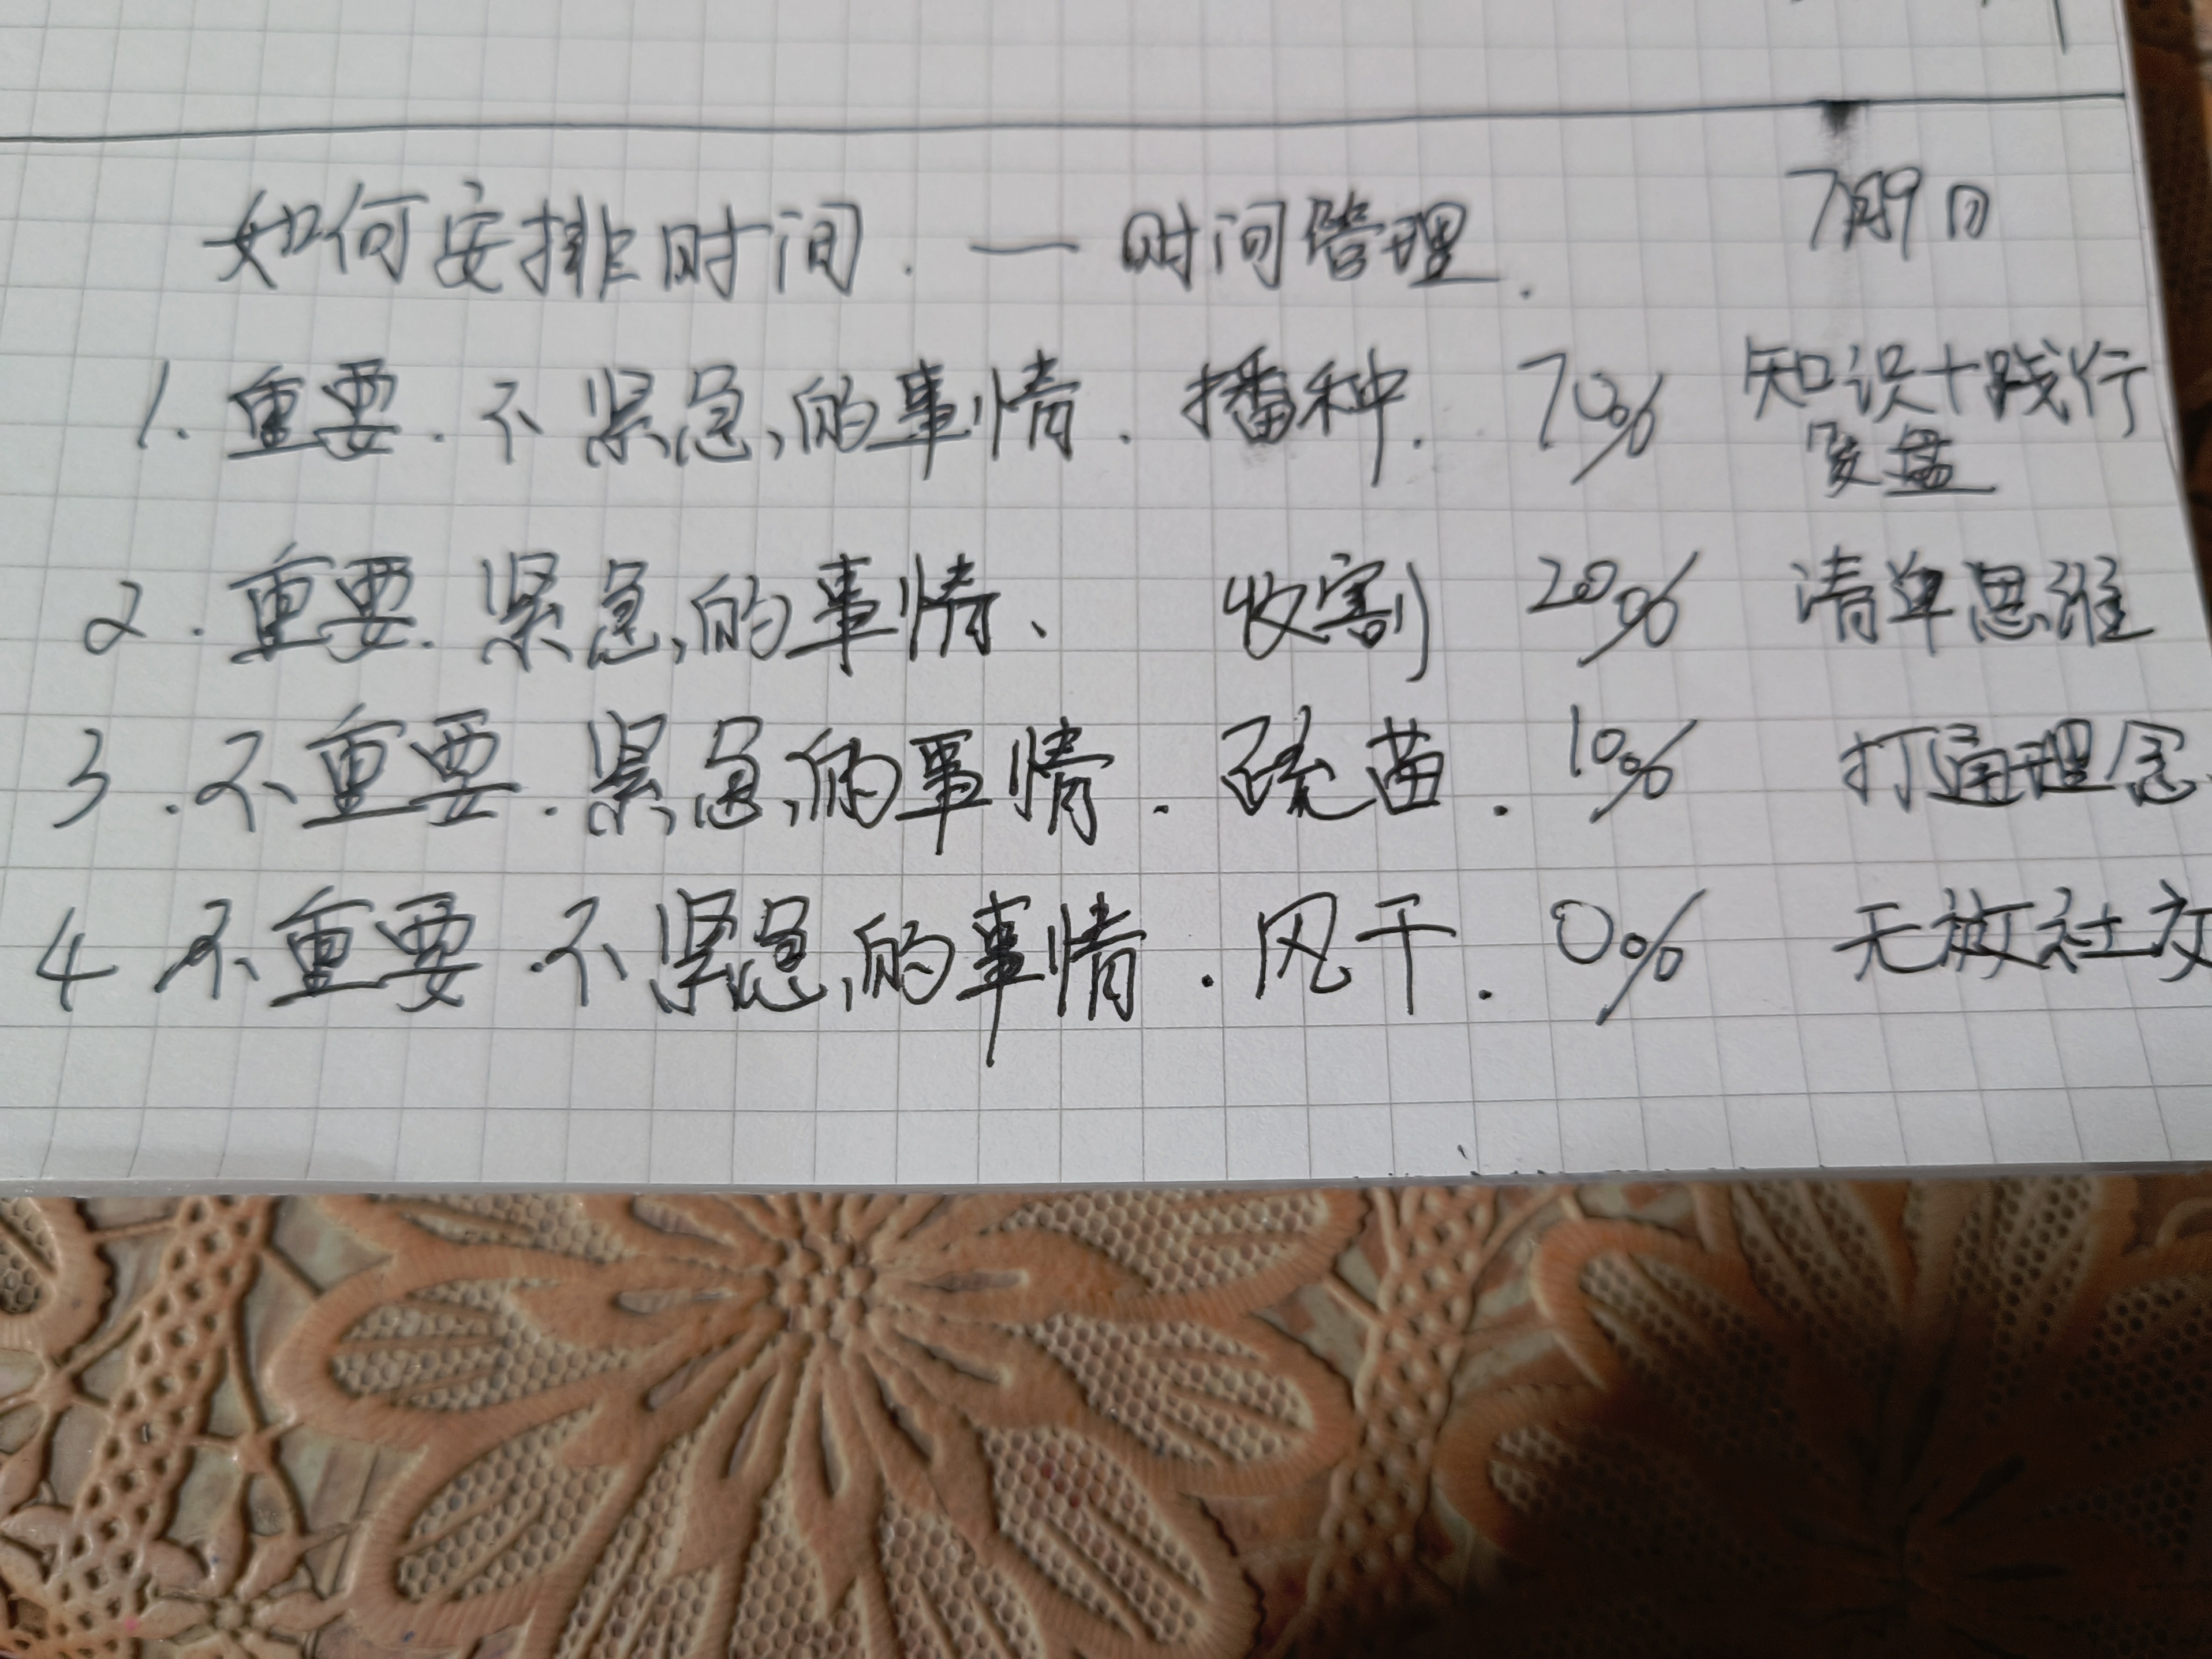 如何安排时间. — 时间管理. 7月9日
1. 重要. 不紧急的事情. 播种. 70% 知识+践行
复盘
2. 重要. 紧急的事情、 收割 20% 清单思维
3. 不重要. 紧急的事情. 疏苗. 10% 打通理念
4 不重要. 不紧急的事情. 风干. 0% 无效社交